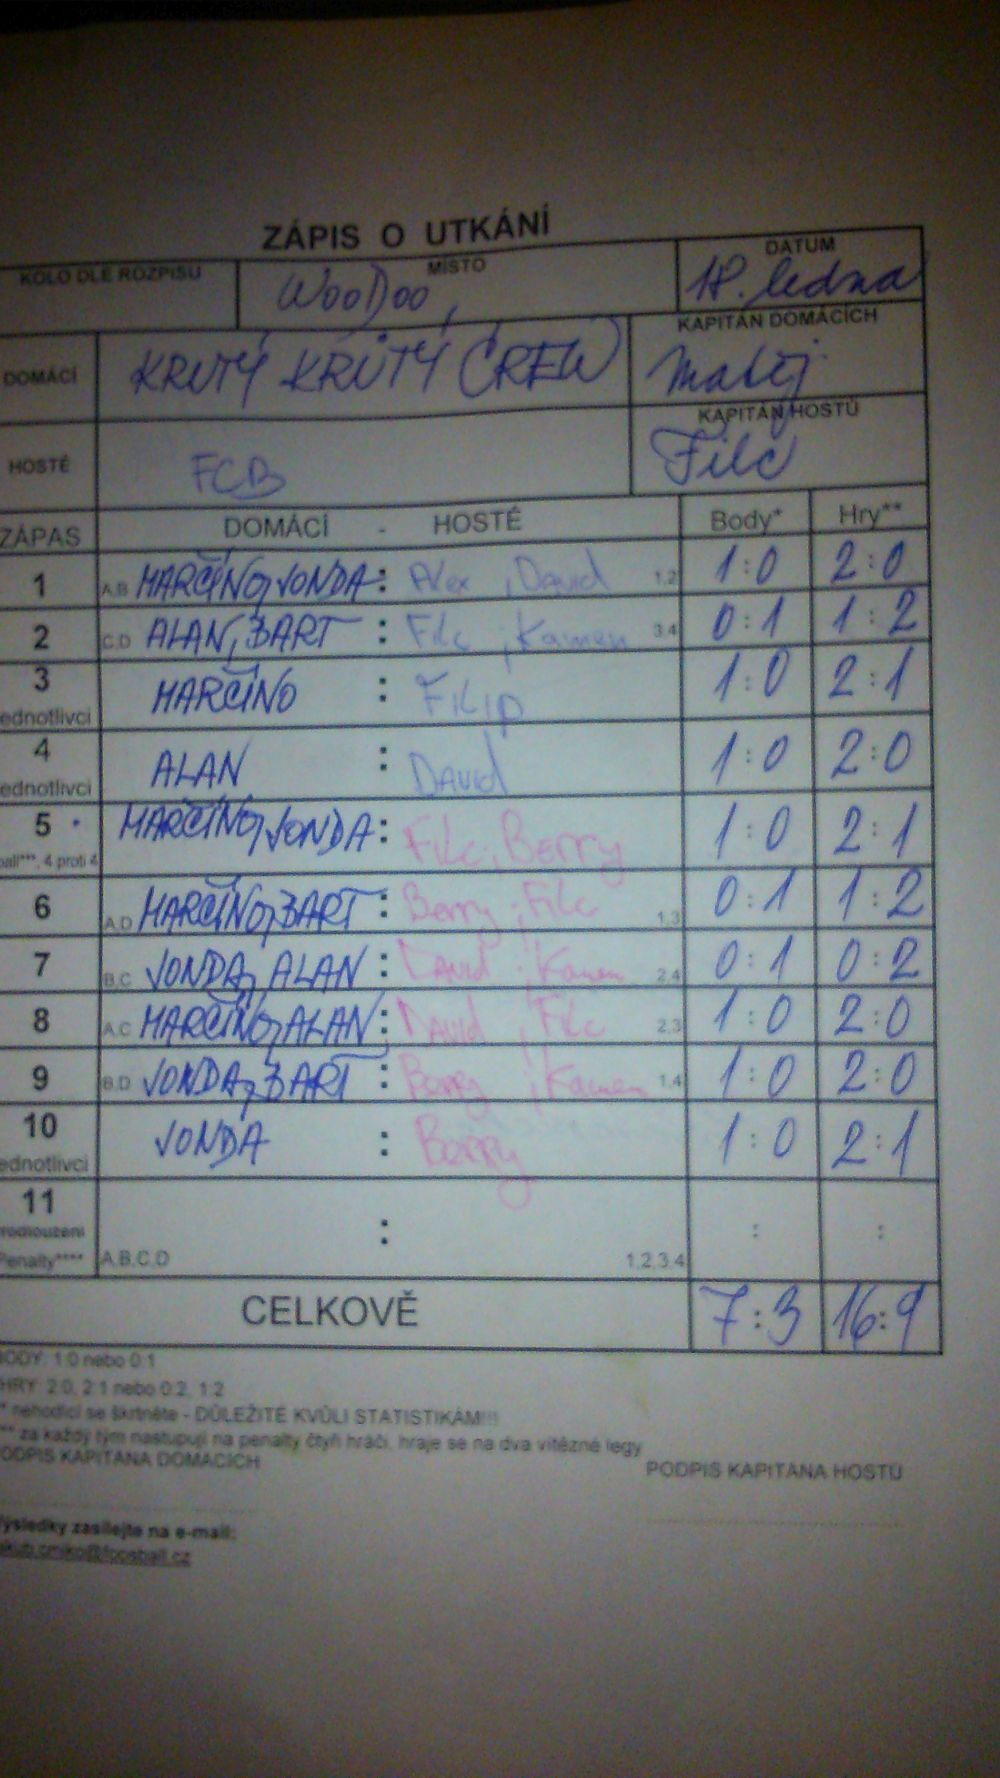 ZÁPIS O UTKÁNÍ
KOLO DLE ROZPISU MÍSTO DATUM
WooDoo, 18. ledna
DOMÁCÍ KRUTÝ KRUTÝ CREW KAPITÁN DOMÁCÍCH
Matěj
HOSTÉ FCB KAPITÁN HOSTŮ
Filc
ZÁPAS DOMÁCÍ - HOSTÉ Body* Hry**
1 A,B MARČÍNO, JONDA : Alex, David 1,2 1:0 2:0
2 C,D ALAN, BART : Filc, Kamen 3,4 0:1 1:2
3 MARČÍNO : FILIP 1:0 2:1
ednotlivci
4 ALAN : DAVID 1:0 2:0
ednotlivci
5 MARČÍNO, JONDA : Filc, Berry 1:0 2:1
ball***, 4 proti 4
6 A,D MARČÍNO, BART : Berry, Filc 1,3 0:1 1:2
7 B,C JONDA, ALAN : David, Kamen 2,4 0:1 0:2
8 A,C MARČÍNO, ALAN : DAVID, Filc 2,3 1:0 2:0
9 B,D JONDA, BART : Berry, Kamen 1,4 1:0 2:0
10 JONDA : Berry 1:0 2:1
ednotlivci
11 : : :
rodloužení
Penalty**** A,B,C,D 1,2,3,4
CELKOVĚ 7:3 16:9
BODY: 1:0 nebo 0:1
HRY: 2:0, 2:1 nebo 0:2, 1:2
* nehodící se škrtněte - DŮLEŽITÉ KVŮLI STATISTIKÁM!!!
** za každý tým nastupují na penalty čtyři hráči, hraje se na dva vítězné legy
PODPIS KAPITÁNA DOMÁCÍCH PODPIS KAPITÁNA HOSTŮ
Výsledky zasílejte na e-mail: